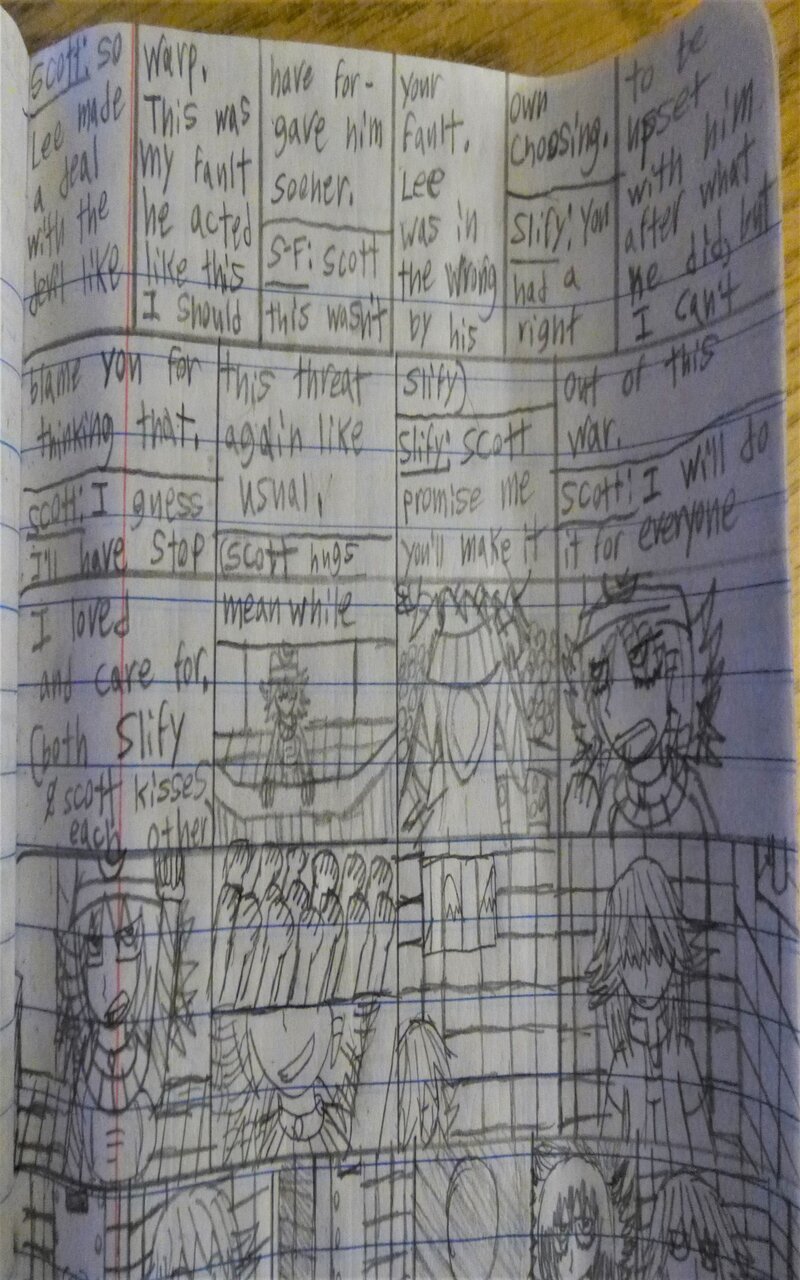 Scott: So
Lee made
a deal
with the
devil like
Warp.
This was
my fault
he acted
like this
I should
have for-
gave him
sooner.
S-F: Scott
this wasn't
your
fault.
Lee
was in
the wrong
by his
own
choosing.
Slify: You
had a
right
to be
upset
with him
after what
he did, but
I can't
blame you for
thinking that.
Scott: I guess
I'll have stop
this threat
again like
usual.
(Scott hugs
Slify)
Slify: Scott
promise me
you'll make it
out of this
war.
Scott: I will do
it for everyone
I loved
and care for.
(both Slify
& scott kisses
each other
meanwhile